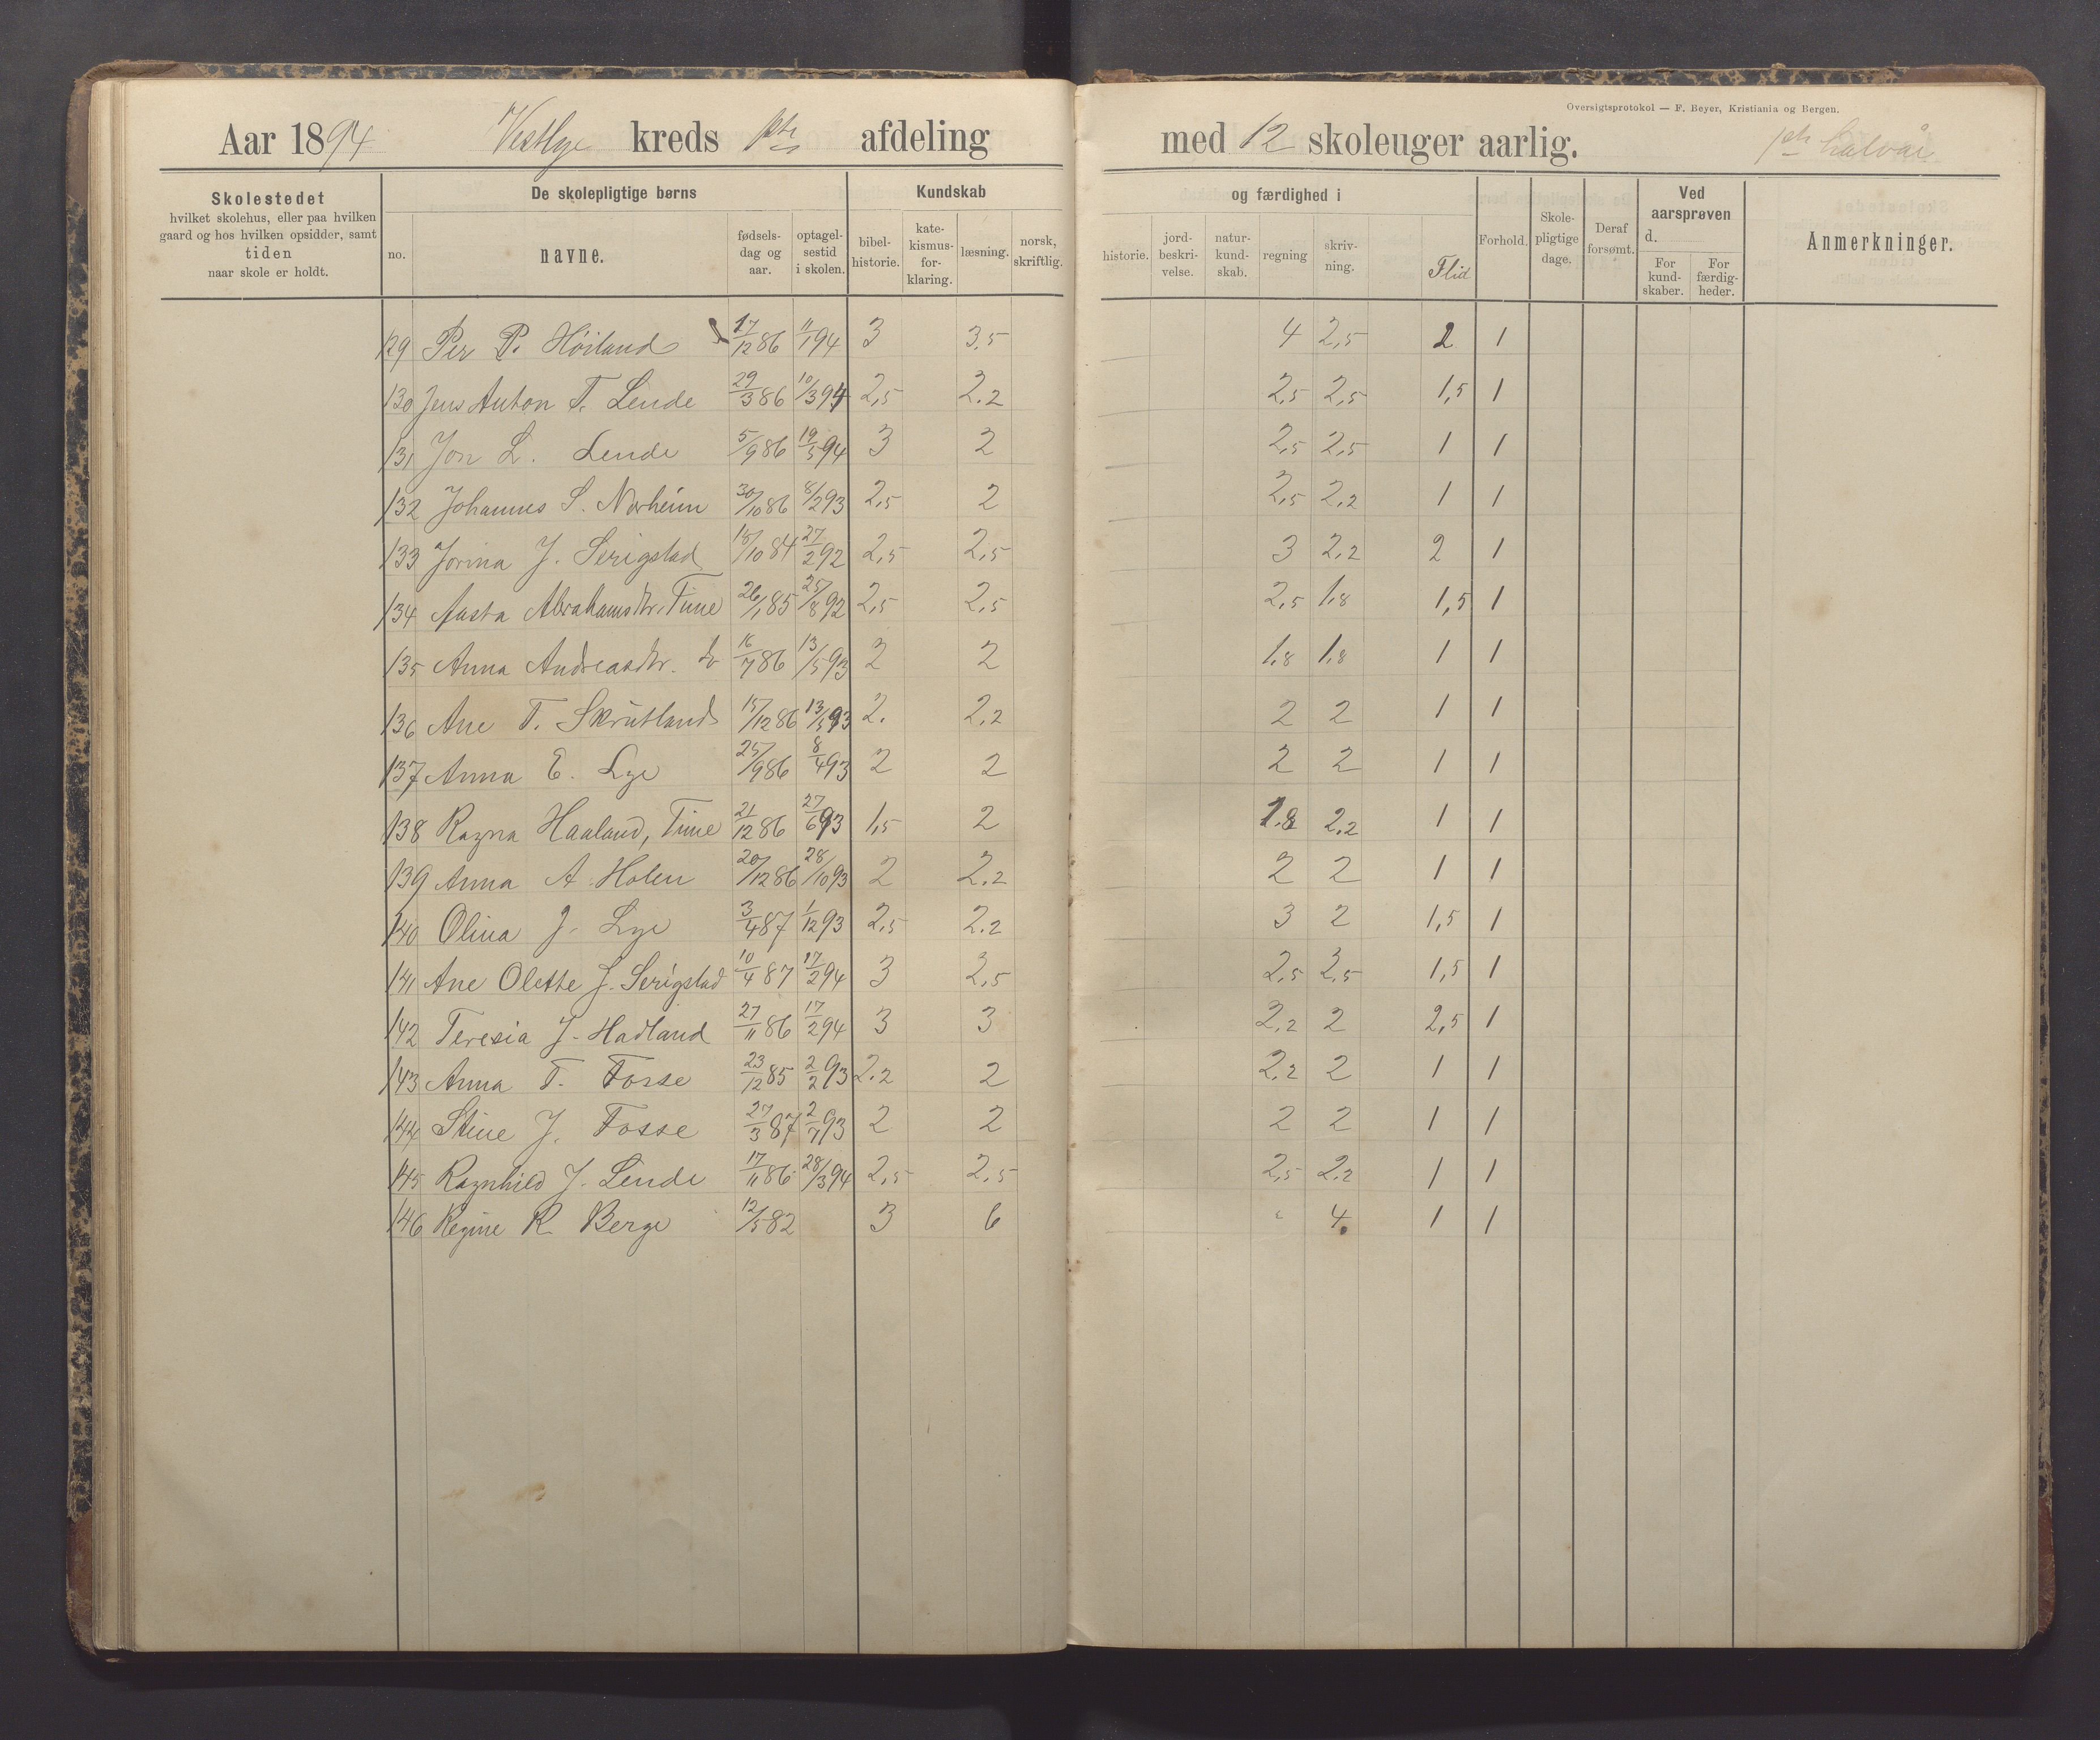 Oversigtsprotokol — F. Beyer, Kristiania og Bergen.
Aar 1894 Vestlye kreds 1ste afdeling med 12 skoleuger aarlig. 1ste halvår
Skolestedet
hvilket skolehus, eller paa hvilken
gaard og hos hvilken opsidder, samt
tiden
naar skole er holdt.
De skolepligtige børns
no. navne. fødsels-dag og aar. optagel-sestid i skolen.
Kundskab og færdighed i
bibel-historie. kate-kismus-for-klaring. læsning. norsk, skriftlig. historie. jord-beskri-velse. natur-kund-skab. regning skriv-ning. Flid
Forhold. Skole-pligtige dage. Deraf forsømt.
Ved aarsprøven d.
For kund-skaber. For færdig-heder.
Anmerkninger.
129 Per P. Höiland 17/12 86 11/1 94 3 3,5 4 2,5 2 1
130 Jens Anton T. Lende 29/3 86 10/3 94 2,5 2.2 2,5 2,5 1,5 1
131 Jon L. Lende 5/9 86 19/5 94 3 2 2,5 2,5 1 1
132 Johannes S. Norheim 30/10 86 8/2 93 2,5 2 2,5 2,2 1 1
133 Jorina J. Serigstad 15/10 84 27/2 92 2,5 2,5 3 2,2 2 1
134 Aasta Abrahamsdtr. Time 26/1 85 25/8 92 2,5 2,5 2,5 1,8 1,5 1
135 Anna Andreasdtr. do 16/7 86 13/5 93 2 2 1,8 1,8 1 1
136 Ane T. Skrutland 15/12 86 13/5 93 2. 2,2 2 2 1 1
137 Anna E. Lye 25/9 86 8/4 93 2 2 2 2 1 1
138 Ragna Haaland, Time 21/12 86 27/6 93 1,5 2 1.8 2,2 1 1
139 Anna A. Holen 20/12 86 28/10 93 2 2.2 2 2 1 1
140 Olina J. Lye 3/4 87 1/12 93 2,5 2.2 3 2 1,5 1
141 Ane Olette J. Serigstad 10/4 87 17/2 94 3 2,5 2,5 2,5 1,5 1
142 Teresia J. Hadland 27/11 86 17/2 94 3 3 2,2 2 2,5 1
143 Anna T. Fosse 23/12 85 2/2 93 2.2 2 2.2 2 1 1
144 Stine J. Fosse 27/3 87 2/7 93 2 2 2 2 1 1
145 Ragnhild J. Lende 17/11 86 28/3 94 2,5 2,5 2,5 2,2 1 1
146 Regine R. Berge 12/5 82 3 6 " 4. 1 1